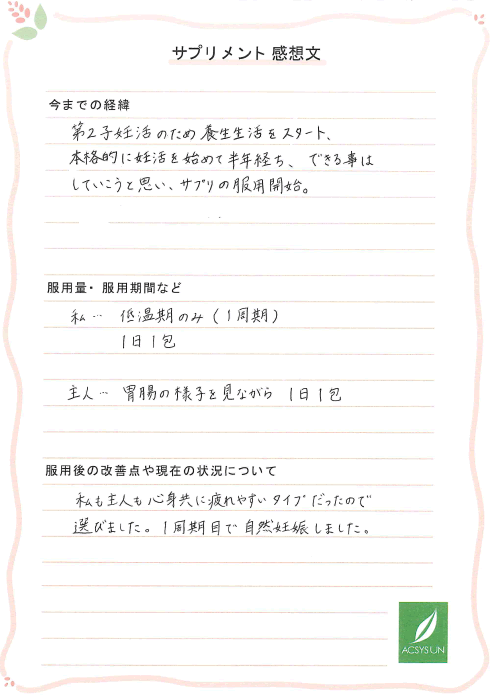 サプリメント 感想文
今までの経緯
第2子妊活のため養生生活をスタート、
本格的に妊活を始めて半年経ち、できる事は
していこうと思い、サプリの服用開始。
服用量・服用期間など
私… 低温期のみ(1周期)
1日1包
主人… 胃腸の様子を見ながら 1日1包
服用後の改善点や現在の状況について
私も主人も心身共に疲れやすいタイプだったので
選びました。1周期目で自然妊娠しました。
ACSYSUN